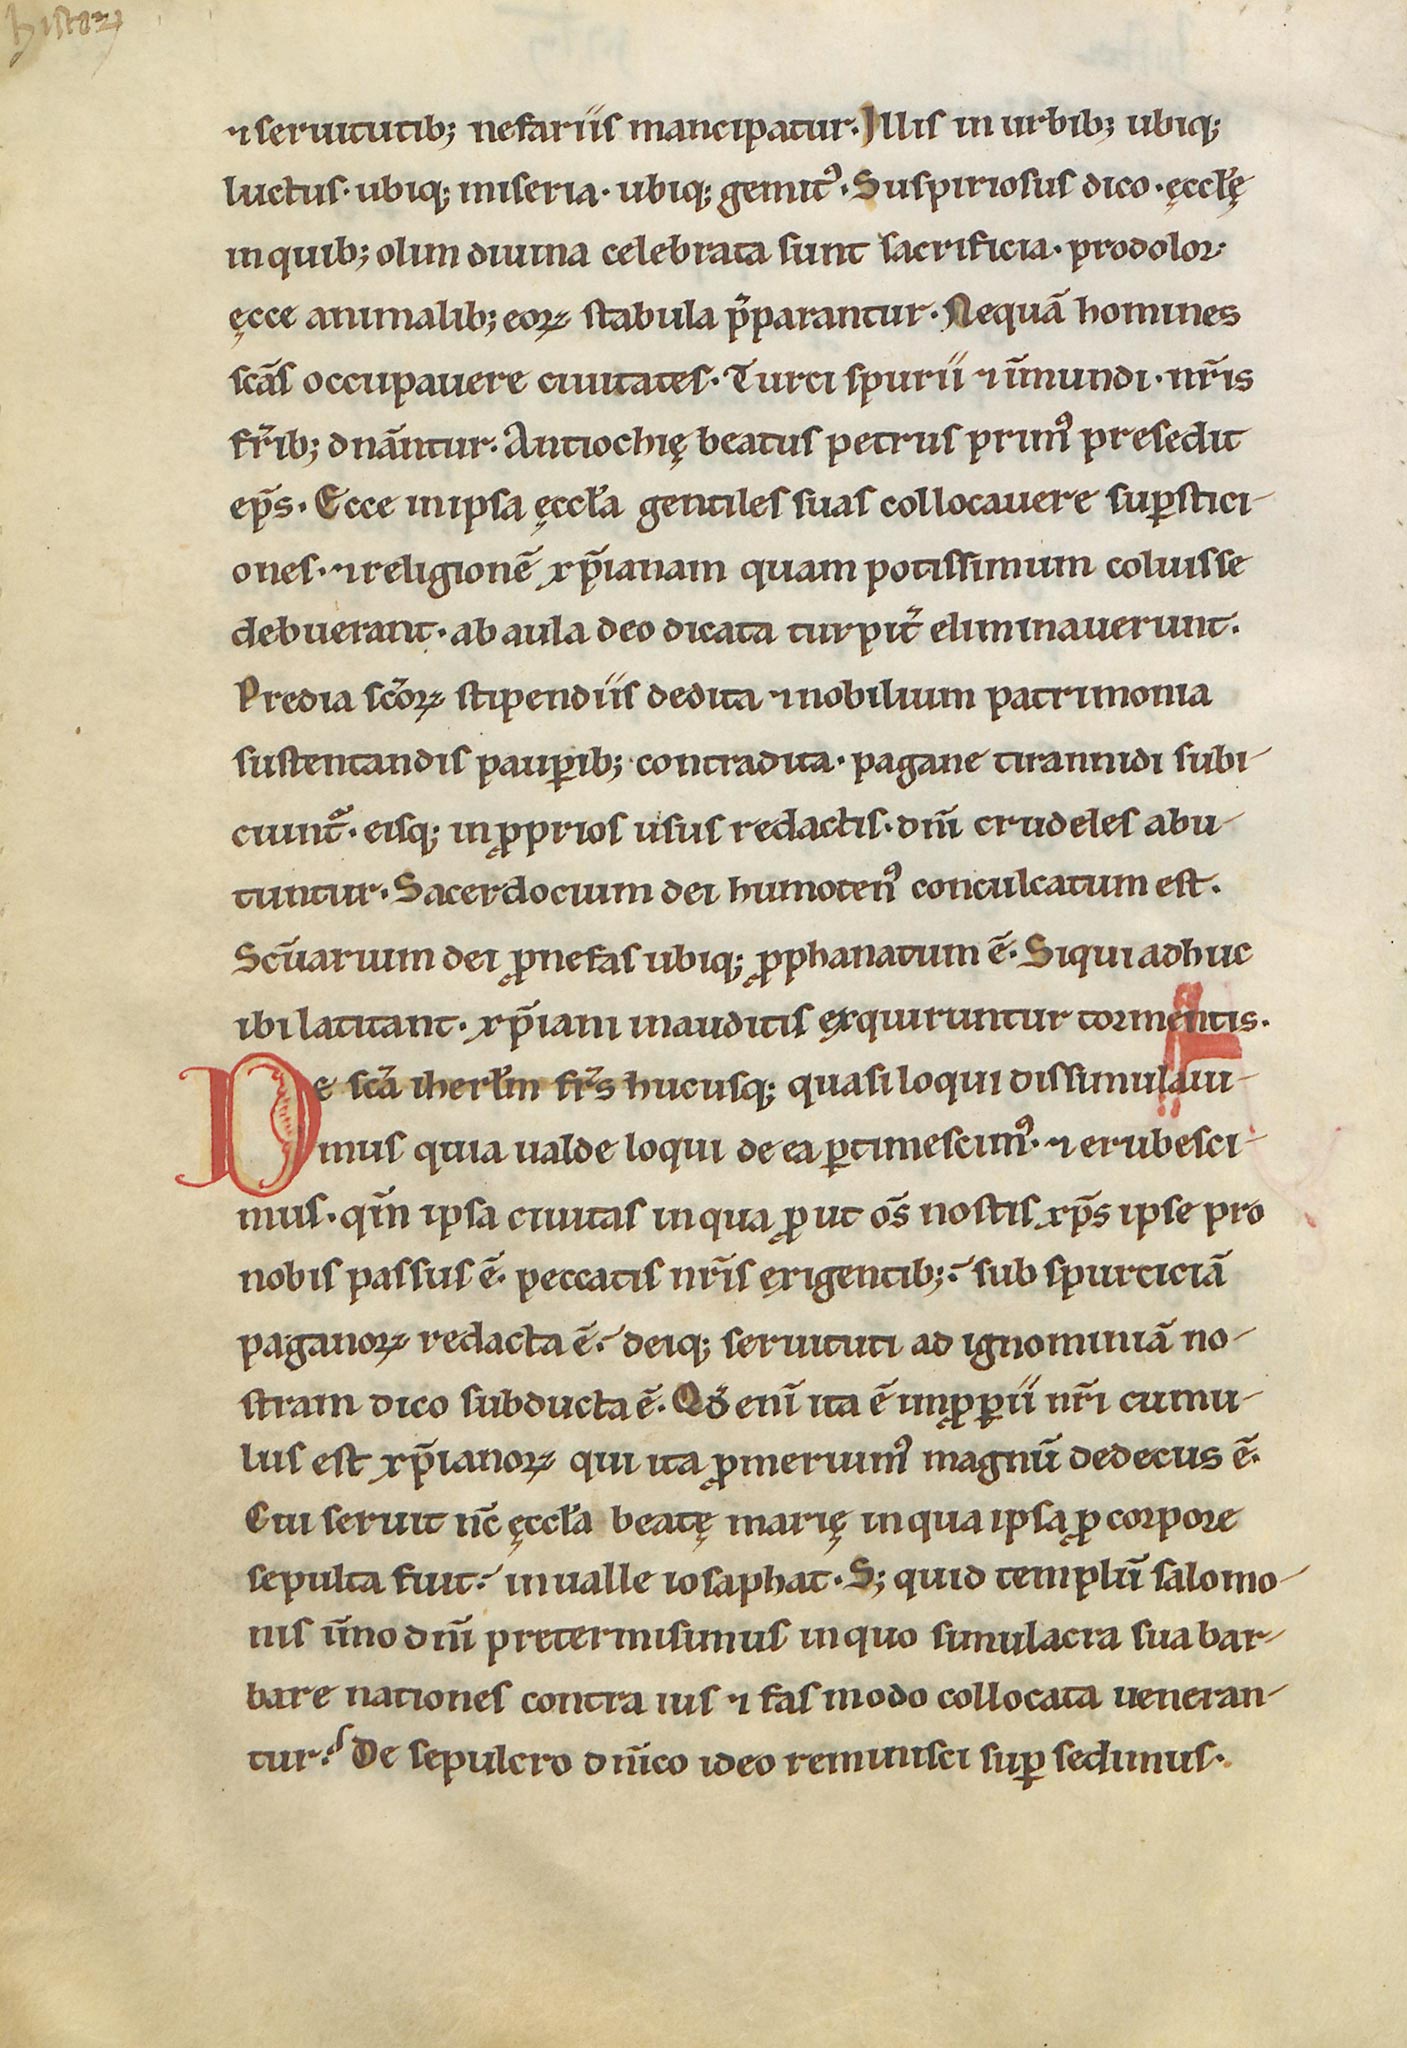 histor
⁊ seruitutib; nefariis mancipatur. Illis in urbib; ubiq;
luctus. ubiq; miseria. ubiq; gemit᾿. Suspiriosus dico. ęcclę̄
in quib; olim diuina celebrata sunt sacrificia. prodolor.
ęcce animalib; eoꝝ stabula p̄parantur. Nequā homines
scās occupauere ciuitates. Turci spurii ⁊ īmundi. nr̄is
fr̄ib; dnāntur. Antiochię beatus petrus prim᾿ presedit
ep̄s. Ecce in ipsa ęccła gentiles suas collocauere suꝑstici-
ones. ⁊ religionē xp̄ianam quam potissimum coluisse
debuerant. ab aula deo dicata turpit̄ eliminauerunt.
Predia scōꝝ stipendiis dedita ⁊ nobilium patrimonia
sustentandis pauꝑib; contradita. pagane tirannidi subi-
ciunt᷑. eisq; in ꝓprios usus redactis. dn̄i crudeles abu-
tuntur. Sacerdocium dei humoten᾿ conculcatum est.
Scūarium dei ꝓ nefas ubiq; ꝓphanatum ē. Siqui adhuc
ibi latitant. xp̄iani inauditis ęxquiruntur tormentis.
De scā iherłm fr̄s hucusq; quasi loqui dissimulaui-
mus quia ualde loqui de ea ꝑtimescim᾿. ⁊ erubesci-
mus. qm̄ ipsa ciuitas in qua ꝓ ut om̄s nostis xp̄s ipse pro
nobis passus ē. peccatis nr̄is ęxigentib; sub spurciciā
paganoꝝ redacta ē. deiq; seruituti ad ignominiā no-
stram dico subducta ē. Qd̄ enī ita ē imꝓꝑii nr̄i cumu-
lus est xp̄ianoꝝ qui ita ꝓmeruim᾿ magnū dedecus ē.
Cui seruit nc̄ ęccła beatę marię in qua ipsa ꝓ corpore
sepulta fuit. in ualle iosaphat. S; quid templū salomo-
nis īmo dn̄i pretermisimus in quo simulacra sua bar-
bare nationes contra ius ⁊ fas modo collocata ueneran-
tur. De sepulcro dn̄ico ideo reminisci suꝑsedimus.